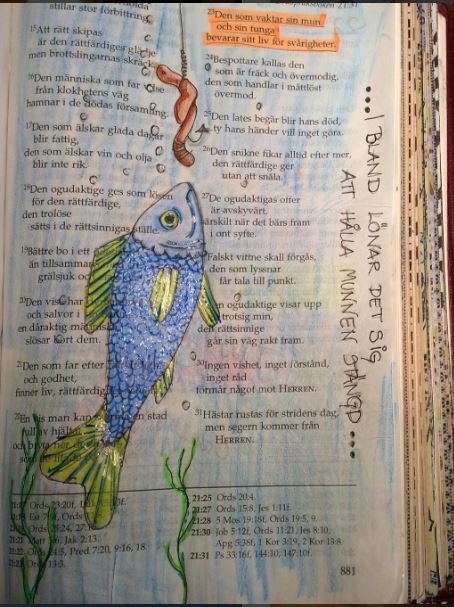 ordsspråksboken 21:31
stillar stor förbittring
15Att rätt skipas
är den rättfärdiges glädje
men brottslingarnas skräck
16Den människa som far vilse
från klokhetens väg
hamnar i de dödas församling.
17Den som älskar glada dagar
blir fattig,
den som älskar vin och olja
blir inte rik.
18Den ogudaktige ges som lösen
för den rättfärdige,
den trolöse
sätts i de rättsinnigas ställe
19Bättre bo i ett
än tillsammans
grälsjuk oc
20Den vise har
och salvor i
en dåraktig människa
slösar bort dem.
21Den som far efter
och godhet,
finner liv, rättfärdig
22En vis man kan en stad
full av hjältar
och bryta ner de
som
23Den som vaktar sin mun
och sin tunga
bevarar sitt liv för svårigheter.
24Bespottare kallas den
som är fräck och övermodig,
den som handlar i måttlöst
övermod.
25Den lates begär blir hans död,
ty hans händer vill inget göra.
26Den snikne fikar alltid efter mer,
den rättfärdige ger
utan att snåla.
27De ogudaktigas offer
är avskyvärt,
särskilt när det bärs fram
i ont syfte.
28Falskt vittne skall förgås,
den som lyssnar
får tala till punkt.
29Den ogudaktige visar upp
trotsig min,
den rättsinnige
går sin väg rakt fram.
30Ingen vishet, inget förstånd,
inget råd
förmår något mot HERREN.
31Hästar rustas för stridens dag,
men segern kommer från
HERREN.
...IBLAND LÖNAR DET SIG
ATT HÅLLA MUNNEN STÄNGD...
21:17 Ords 23:20f, Luk
21:18 Es 7:9f, Ords
Ords 24, 27:15
21:21 Matt 5:6, Jak 2:13.
21:22 Ords 24:5, Pred 7:20, 9:16, 18.
21:23 Ords 13:3.
21:25 Ords 20:4.
21:27 Ords 15:8, Jes 1:11f.
21:28 5 Mos 19:18f, Ords 19:5, 9.
21:30 Job 5:12f, Ords 11:21, Jes 8:10,
Apg 5:38f, 1 Kor 3:19, 2 Kor 13:8.
21:31 Ps 33:16f, 144:10, 147:10f.
881